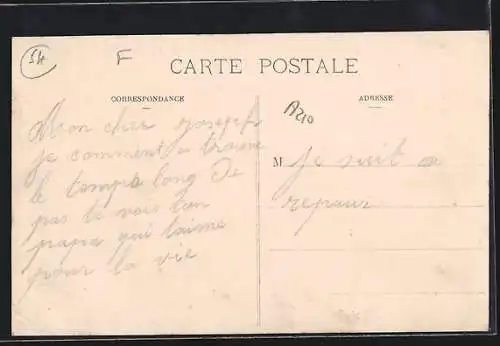 54
F
CARTE POSTALE
CORRESPONDANCE
ADRESSE
A210
Mon cher Joseph
je comment a trouve
le temps long de
pas te vois ton
papa qui t'aime
pour la vie
M je suit a